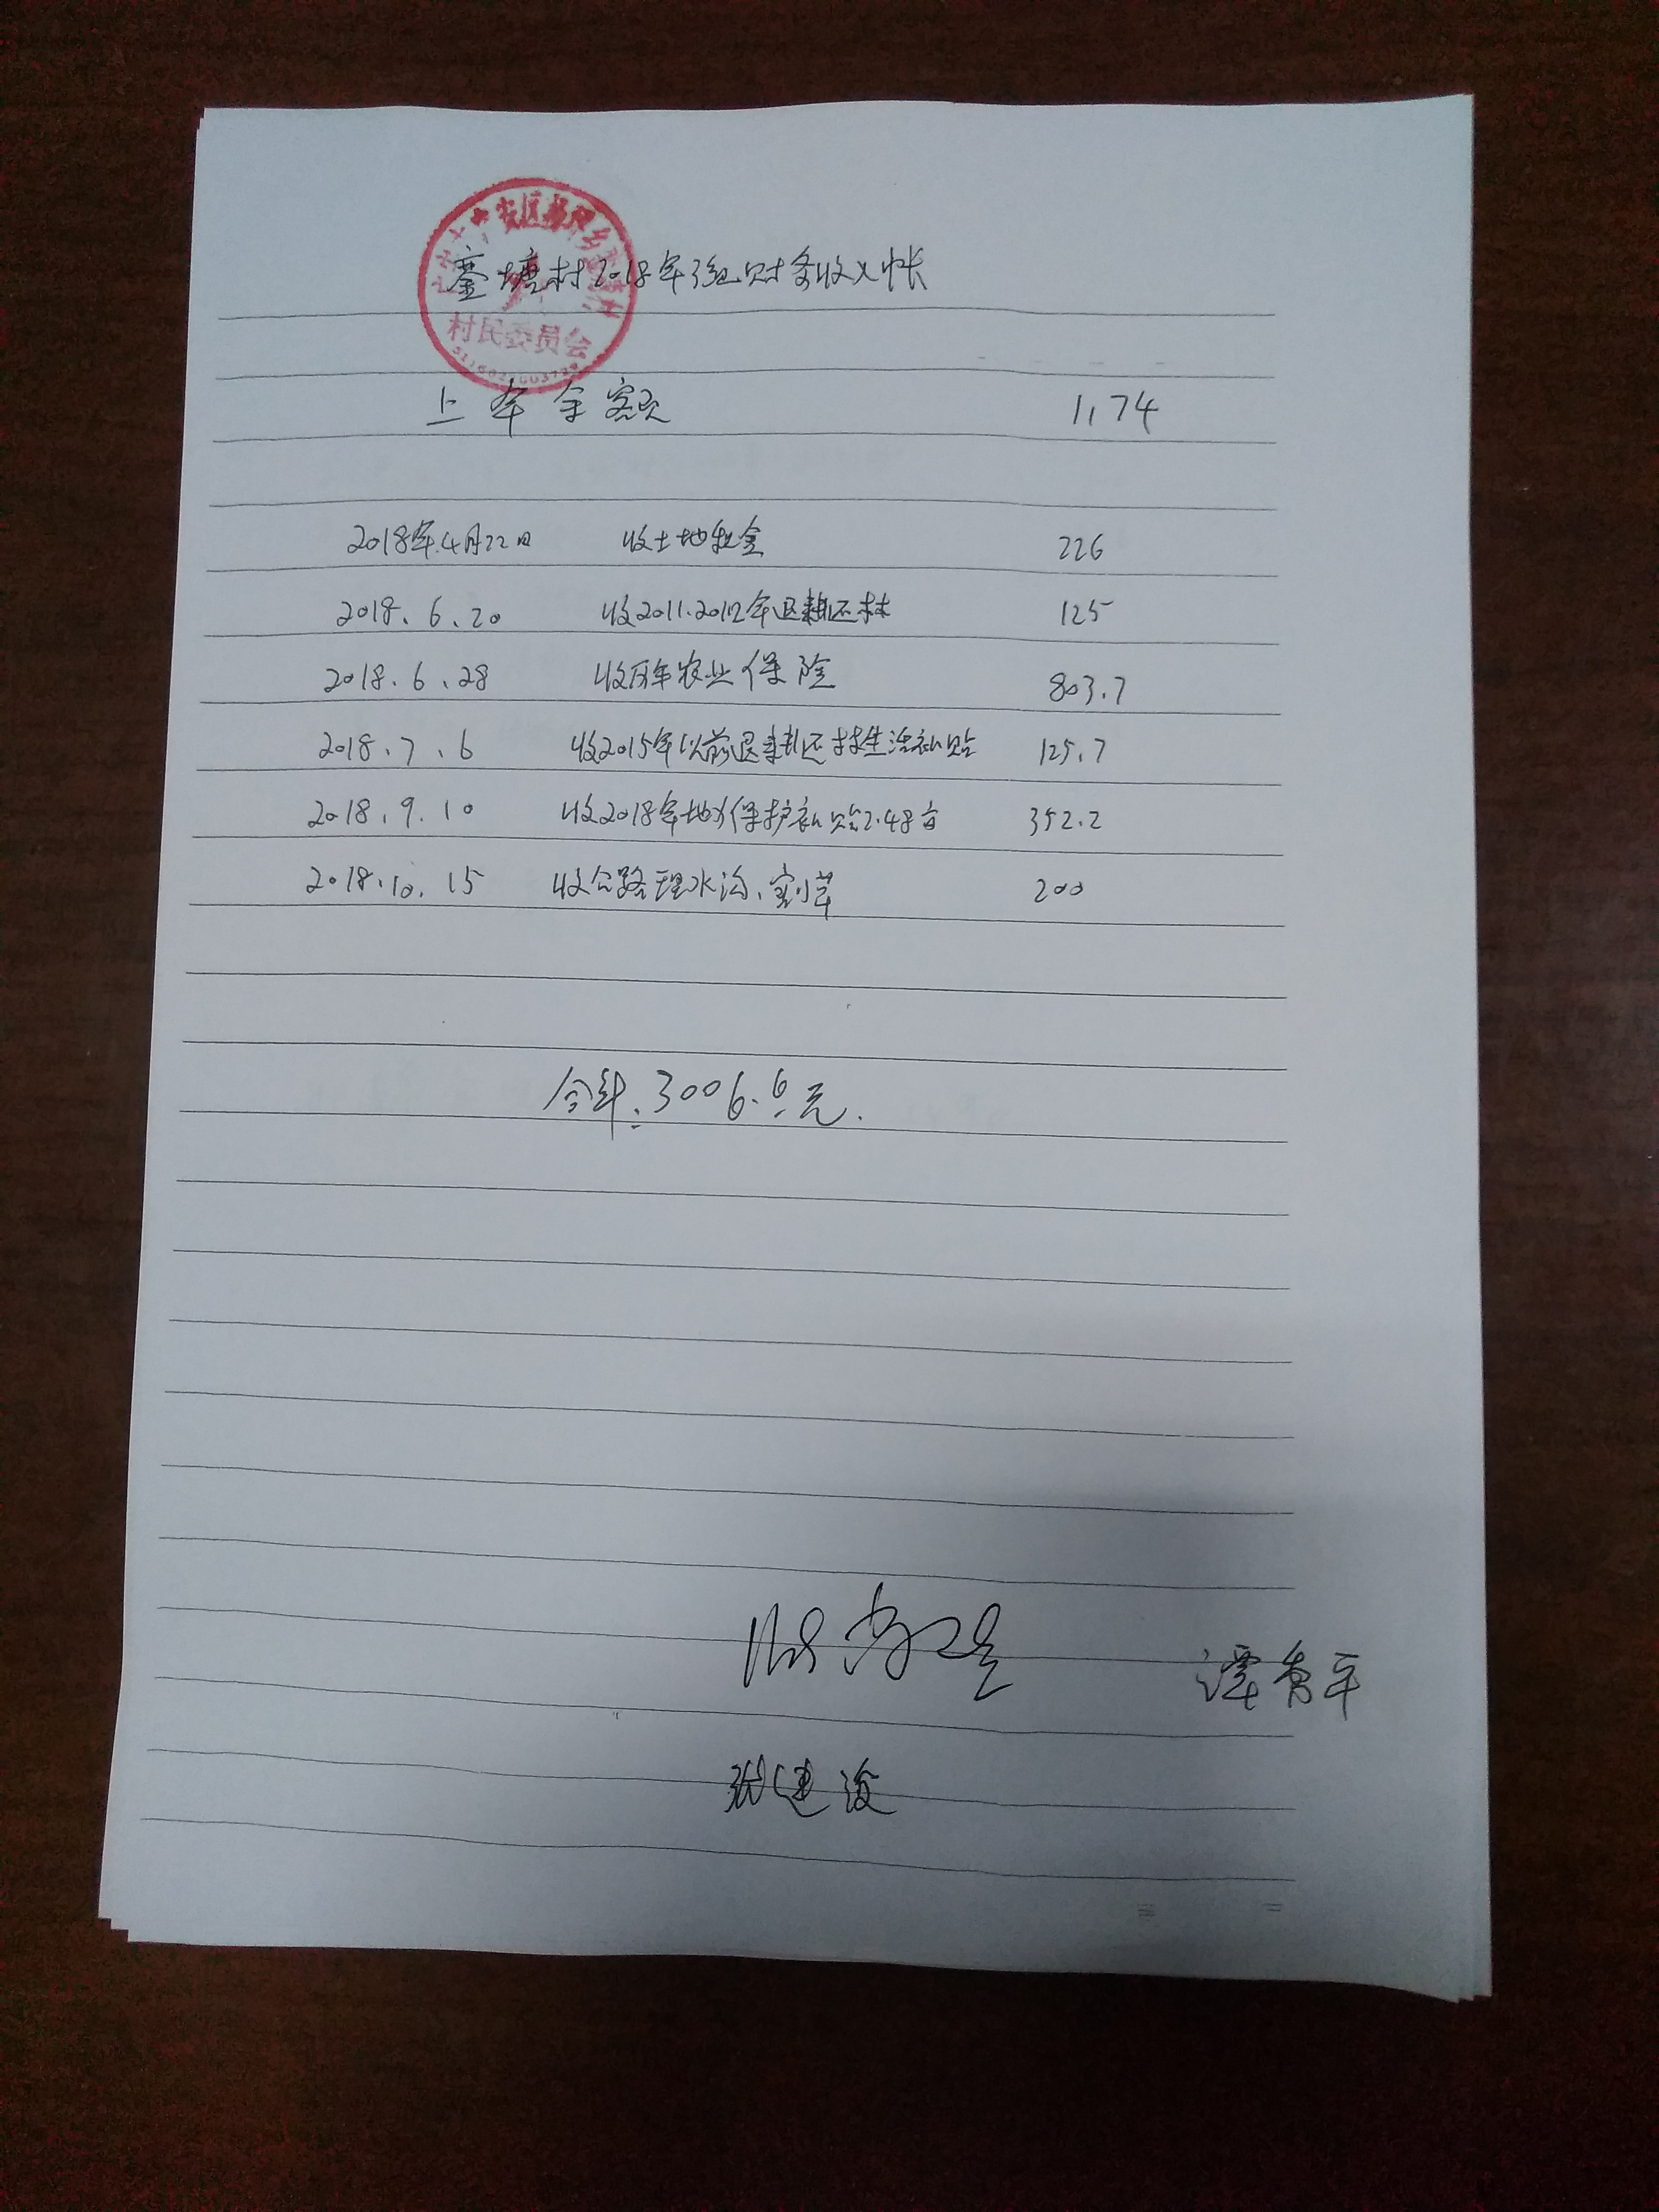 寨塘村2018年3组财务收入帐
村民委员会
上年余额 1174
2018年4月22日 收土地租金 226
2018.6.20 收2011.2012年退耕还林 125
2018.6.28 收历年农业保险 803.7
2018.7.6 收2015年以前退耕还林生活补贴 125.7
2018.9.10 收2018年地力保护补贴2.48亩 352.2
2018.10.15 收公路理水沟、割草 200
合计:3006.6元.
谭青平
张建波